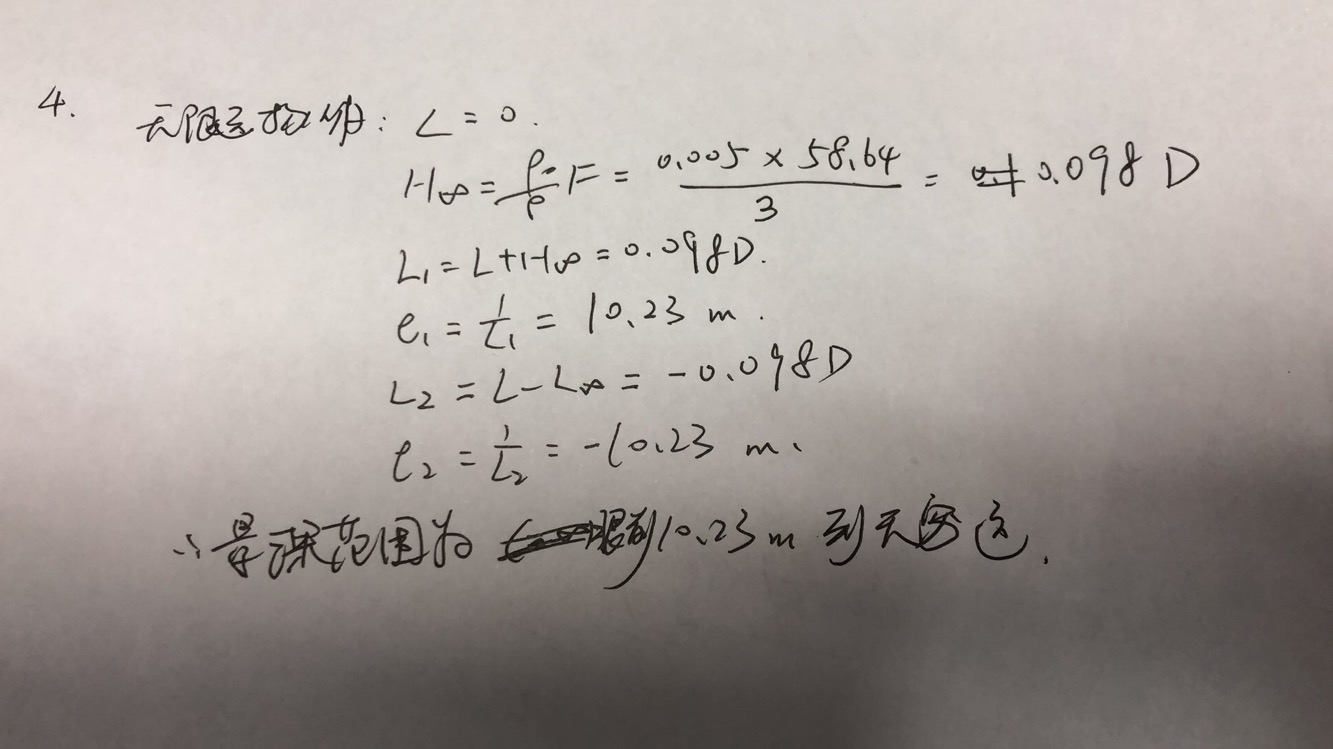 4. 无限远物体: L = 0.
H∞ = ρ₀/ρ F = 0.005 × 58.64 / 3 = 0.098 D
L₁ = L + H∞ = 0.098D.
ℓ₁ = 1/L₁ = 10.23 m.
L₂ = L - L∞ = -0.098D
ℓ₂ = 1/L₂ = -10.23 m.
∴ 景深范围为 眼前10.23m 到无穷远.